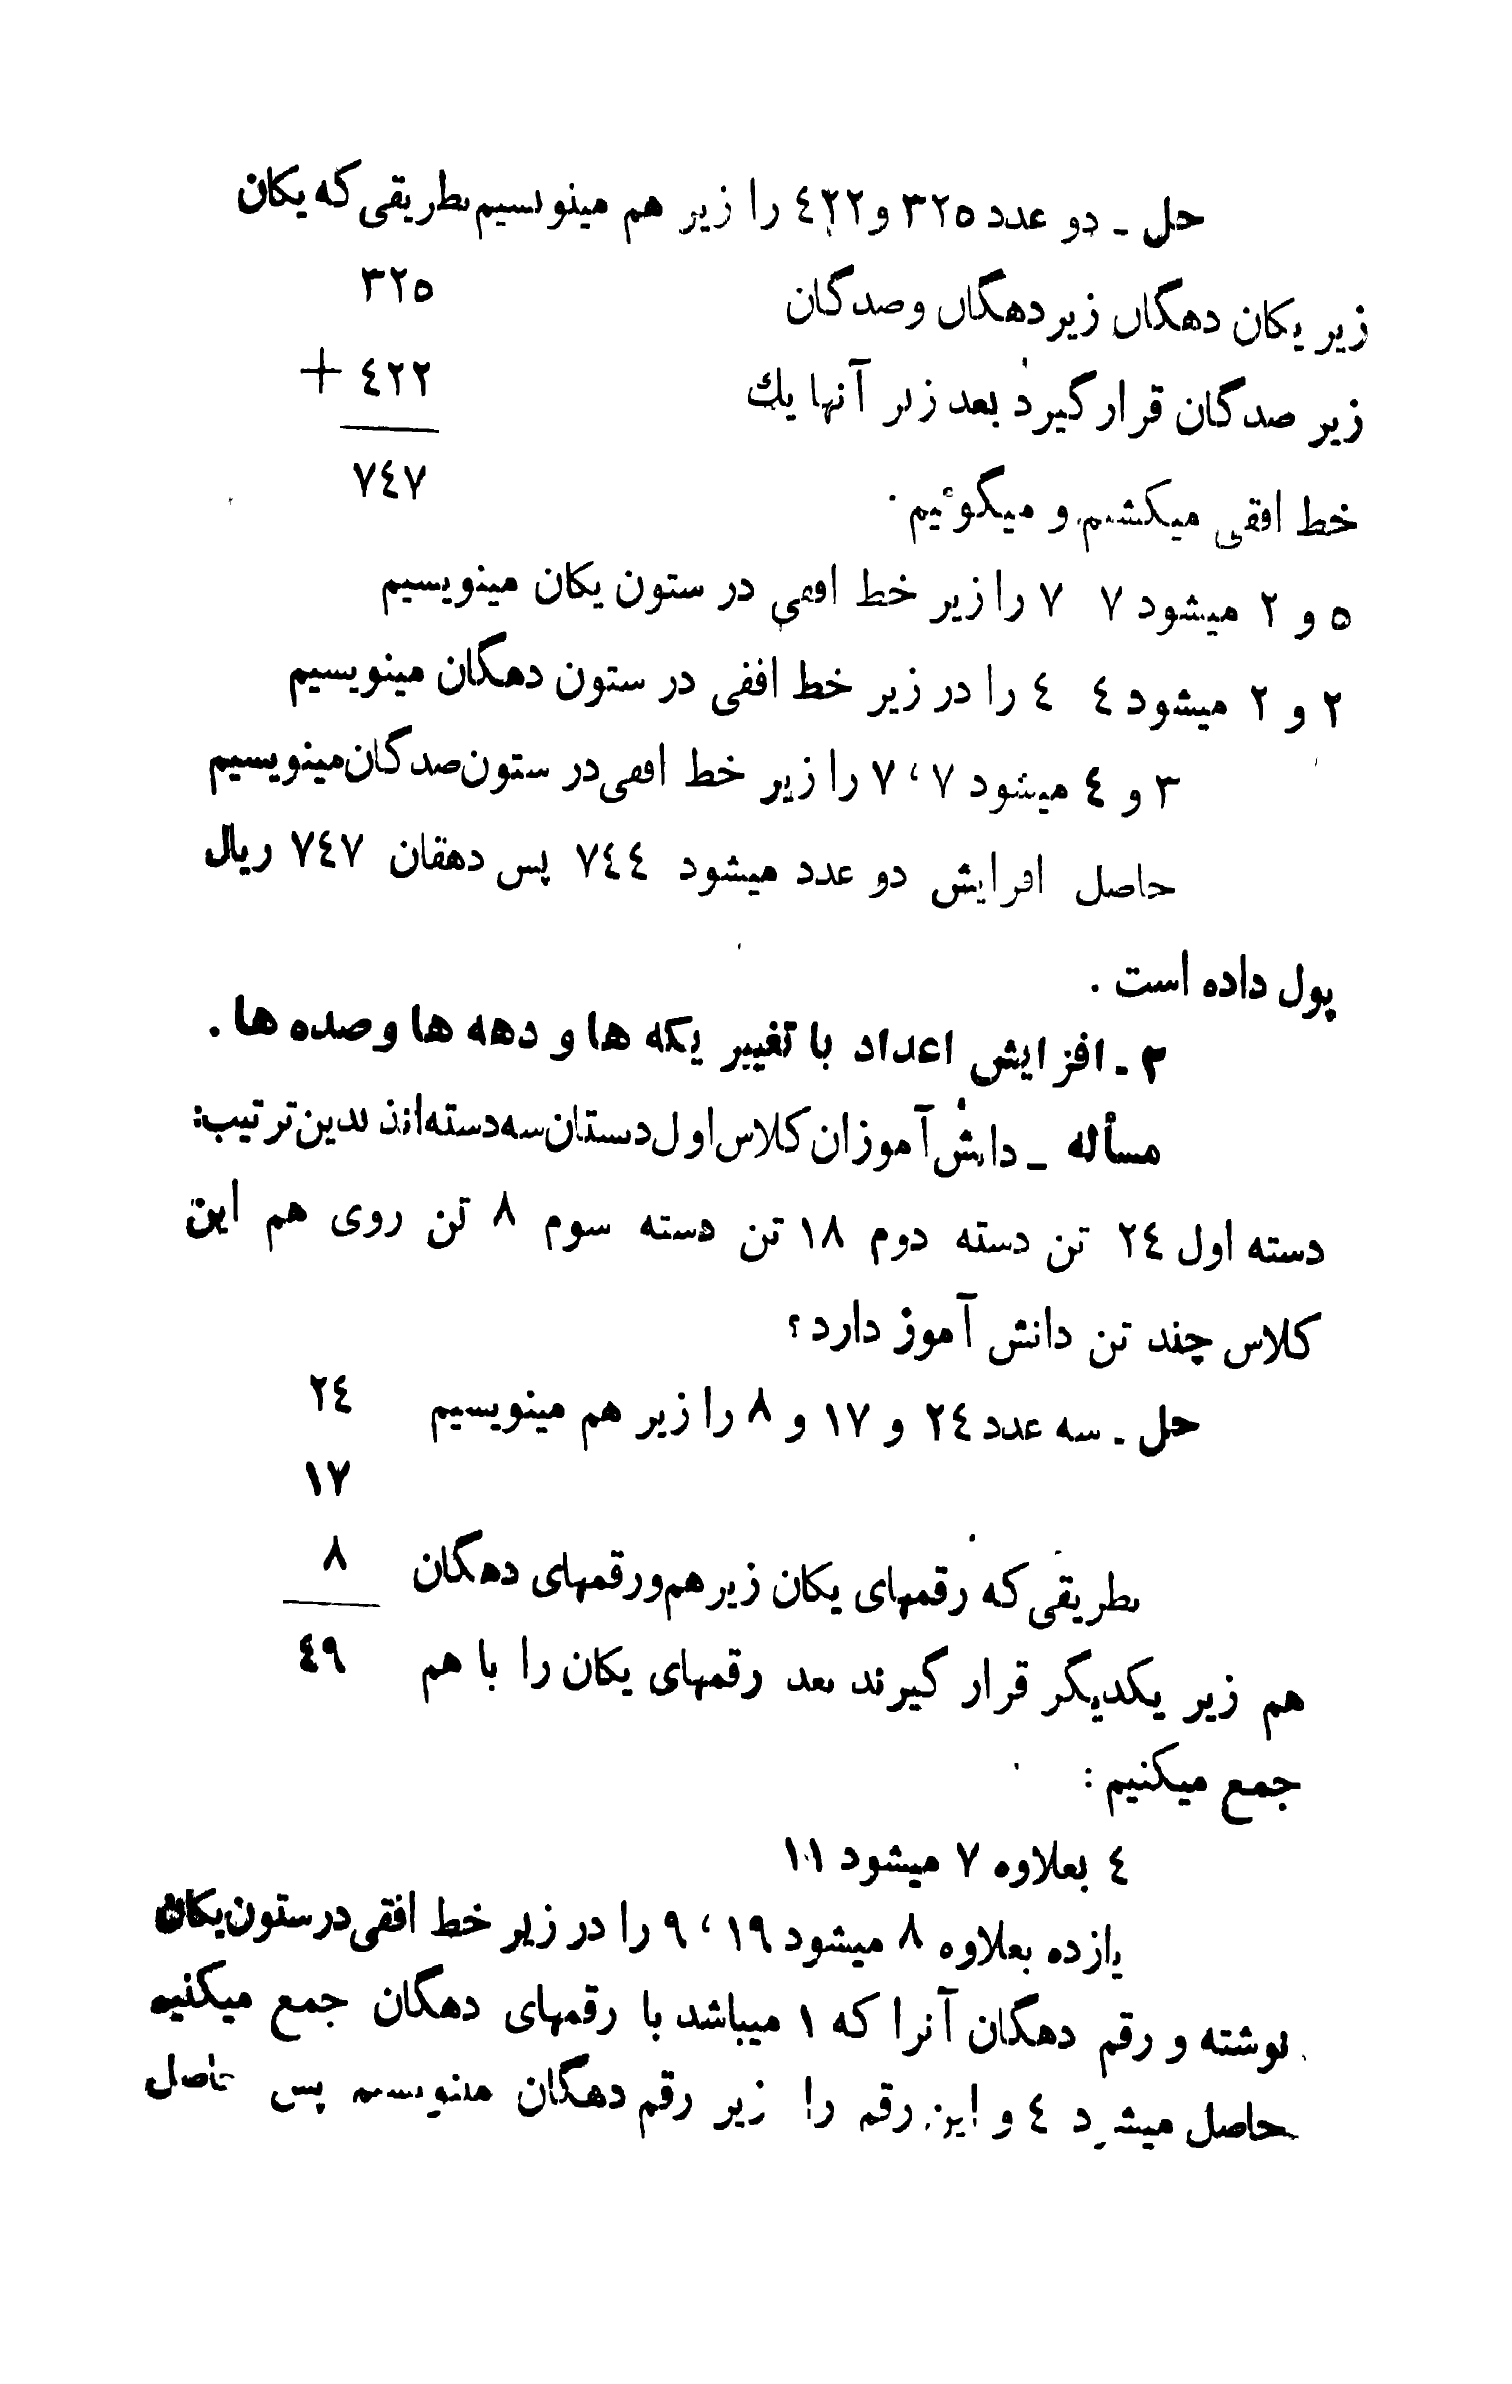 حل ـ دو عدد ٣٢٥ و ٤٢٢ را زیر هم مینویسیم بطریقی که یکان
٣٢٥
زیر یکان دهگان زیر دهگان وصدگان
+ ٤٢٢
زیر صدگان قرار گیرد بعد زیر آنها یك
٧٤٧
خط افقی میکشیم و میگوئیم .
٥ و ٢ میشود ٧ ٧ را زیر خط افقی در ستون یکان مینویسیم
٢ و ٢ میشود ٤ ٤ را در زیر خط افقی در ستون دهگان مینویسیم
٣ و ٤ میشود ٧ ، ٧ را زیر خط افقی در ستون صدگان مینویسیم
حاصل افزایش دو عدد میشود ٧٤٤ پس دهقان ٧٤٧ ریال
پول داده است .
٣ ـ افزایش اعداد با تغییر یکه ها و دهه ها وصده ها .
مسأله ـ دانش آموزان کلاس اول دبستان سه دسته‌اند بدین ترتیب:
دسته اول ٢٤ تن دسته دوم ١٨ تن دسته سوم ٨ تن روی هم این
کلاس چند تن دانش آموز دارد ؟
حل ـ سه عدد ٢٤ و ١٧ و ٨ را زیر هم مینویسیم
٢٤
١٧
٨
بطریقی که رقمهای یکان زیر هم و رقمهای دهگان
هم زیر یکدیگر قرار گیرند بعد رقمهای یکان را با هم
٤٩
جمع میکنیم :
٤ بعلاوه ٧ میشود ١١
یازده بعلاوه ٨ میشود ١٩ ، ٩ را در زیر خط افقی در ستون یکان
نوشته و رقم دهگان آنرا که ١ میباشد با رقمهای دهگان جمع میکنیم
حاصل میشود ٤ و این رقم را زیر رقم دهگان مینویسیم پس حاصل